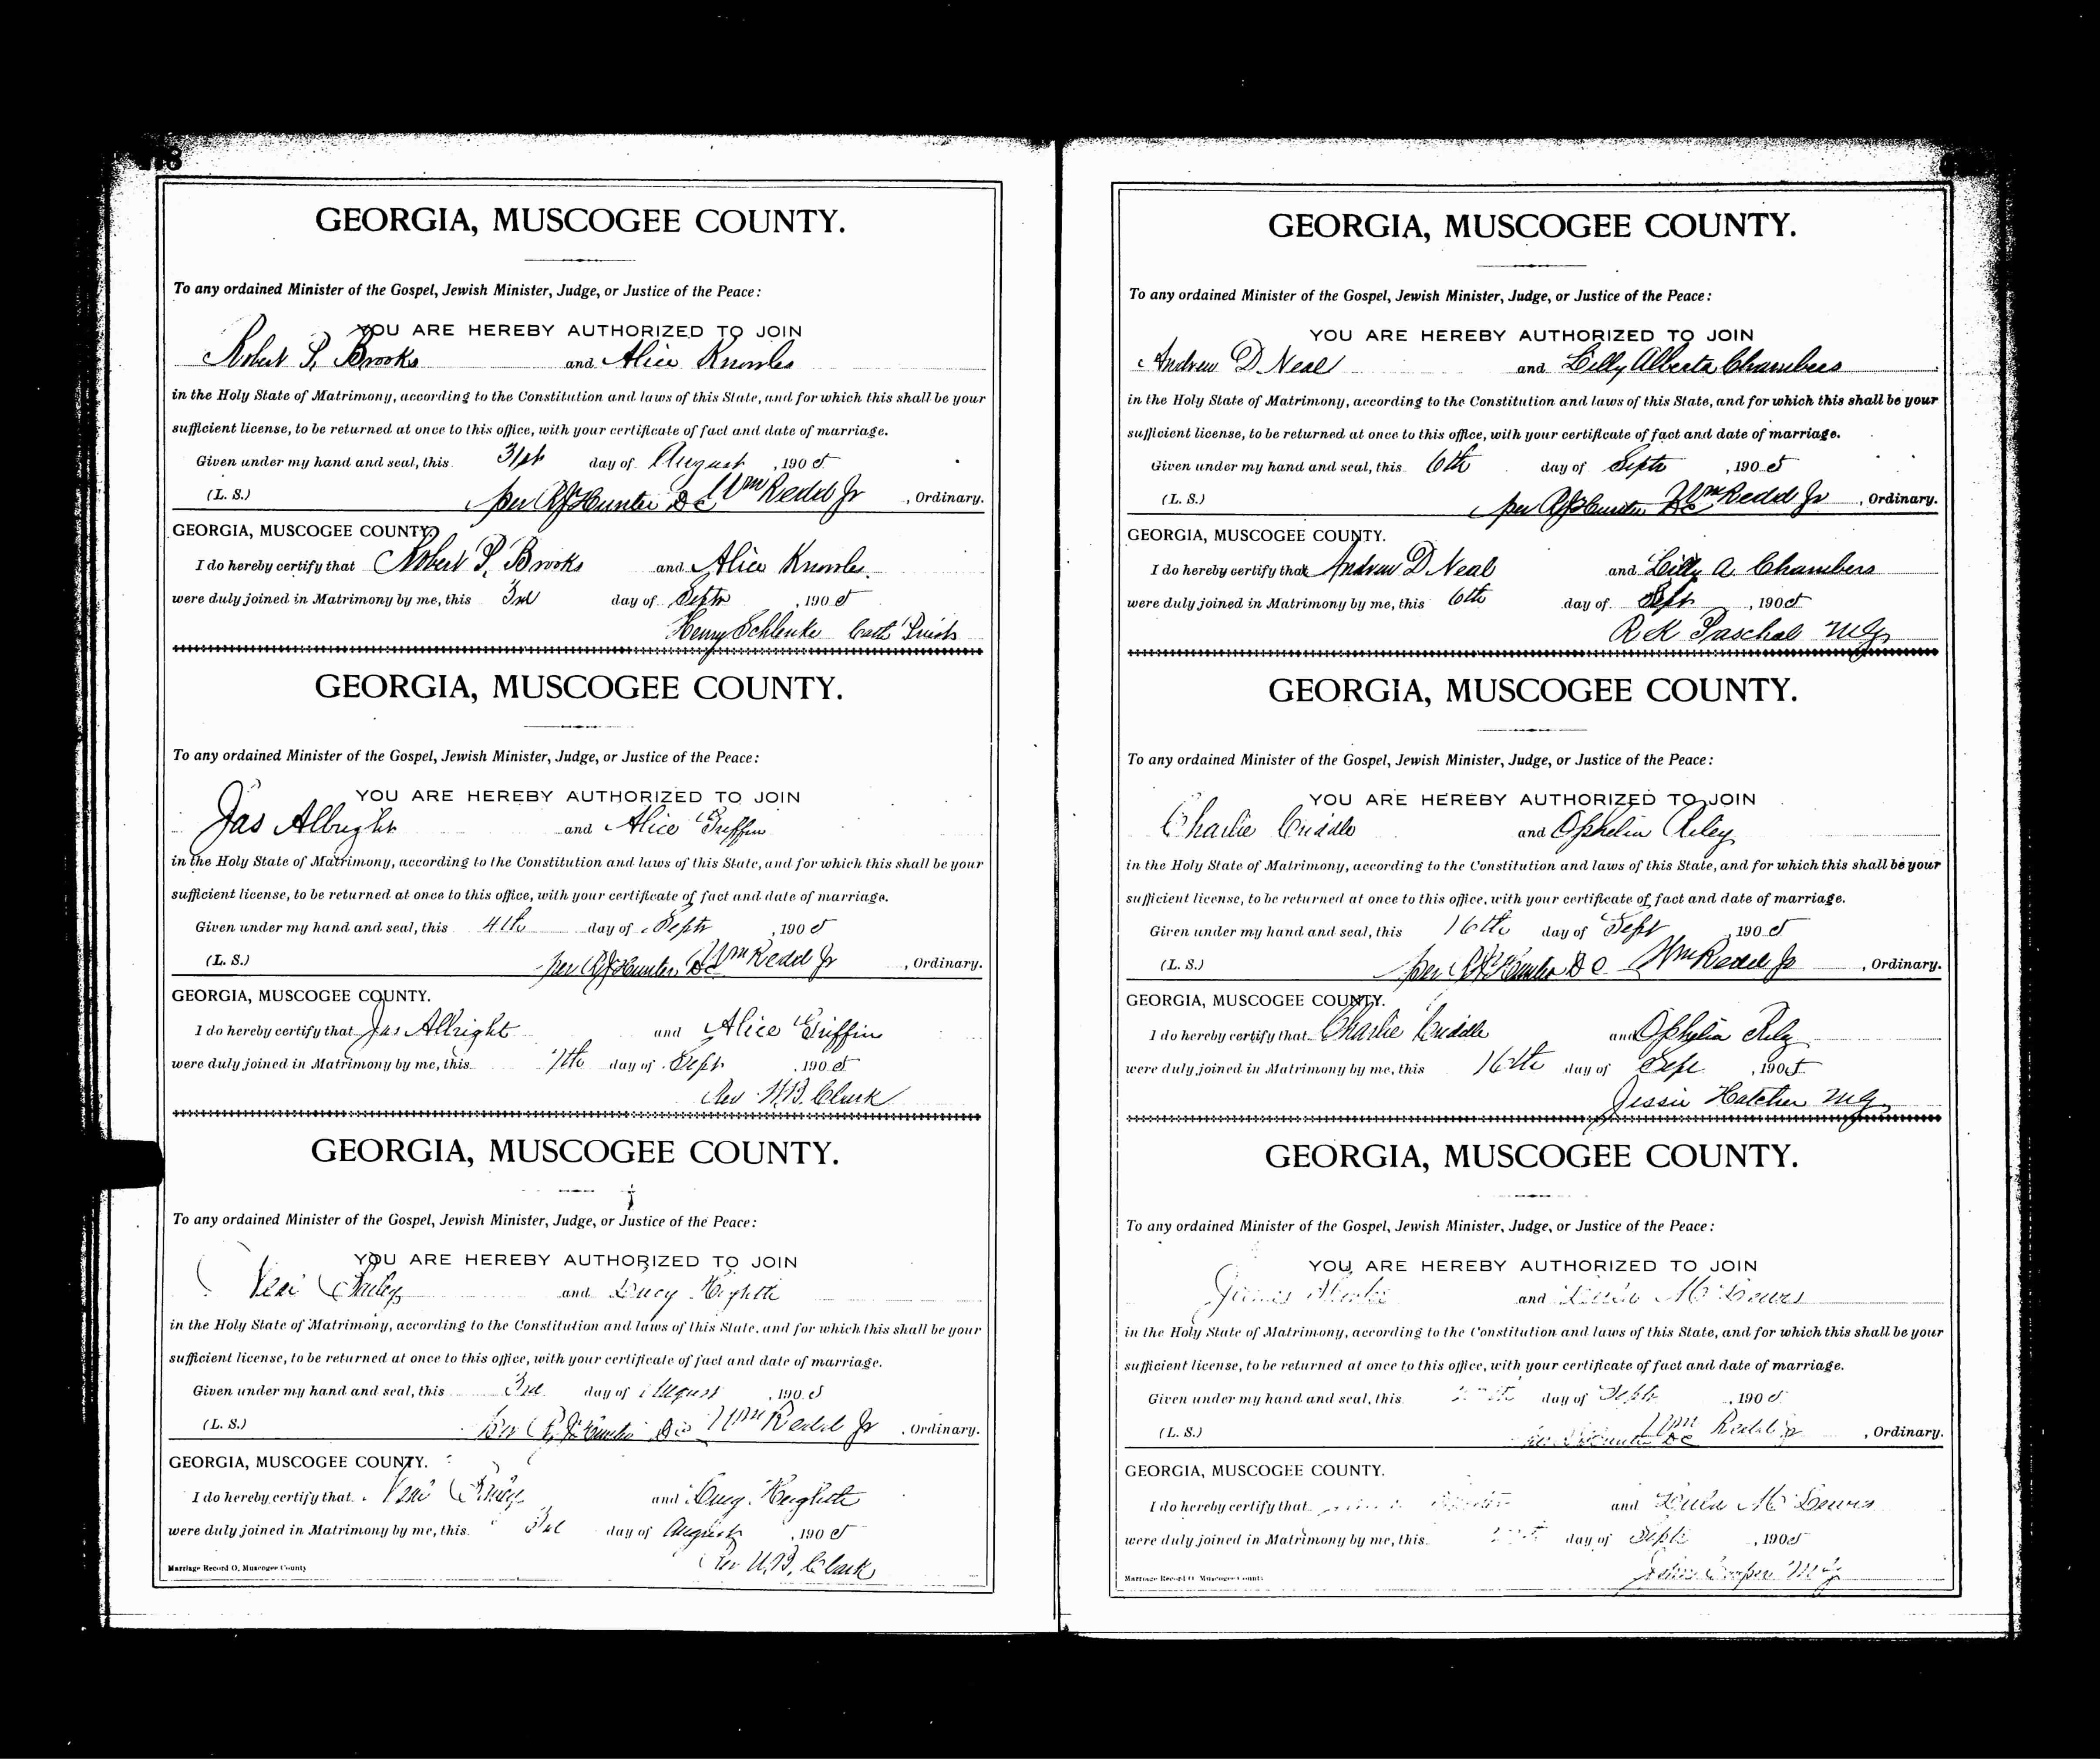 GEORGIA, MUSCOGEE COUNTY.
To any ordained Minister of the Gospel, Jewish Minister, Judge, or Justice of the Peace:
YOU ARE HEREBY AUTHORIZED TO JOIN
Robert P. Brooks and Alice Knowles
in the Holy State of Matrimony, according to the Constitution and laws of this State, and for which this shall be your
sufficient license, to be returned at once to this office, with your certificate of fact and date of marriage.
Given under my hand and seal, this 31st day of August, 1905
(L. S.) per R J Hunter DC Wm Redd Jr, Ordinary.
GEORGIA, MUSCOGEE COUNTY.
I do hereby certify that Robert P. Brooks and Alice Knowles
were duly joined in Matrimony by me, this 3rd day of Sept, 1905
Henry Schlenke Cath Priest
GEORGIA, MUSCOGEE COUNTY.
To any ordained Minister of the Gospel, Jewish Minister, Judge, or Justice of the Peace:
YOU ARE HEREBY AUTHORIZED TO JOIN
Jas Albright and Alice Griffin
in the Holy State of Matrimony, according to the Constitution and laws of this State, and for which this shall be your
sufficient license, to be returned at once to this office, with your certificate of fact and date of marriage.
Given under my hand and seal, this 4th day of Sept, 1905
(L. S.) per R J Hunter DC Wm Redd Jr, Ordinary.
GEORGIA, MUSCOGEE COUNTY.
I do hereby certify that Jas Albright and Alice Griffin
were duly joined in Matrimony by me, this 7th day of Sept, 1905
Rev W.B. Clark
GEORGIA, MUSCOGEE COUNTY.
To any ordained Minister of the Gospel, Jewish Minister, Judge, or Justice of the Peace:
YOU ARE HEREBY AUTHORIZED TO JOIN
and Lucy Heighth
in the Holy State of Matrimony, according to the Constitution and laws of this State, and for which this shall be your
sufficient license, to be returned at once to this office, with your certificate of fact and date of marriage.
Given under my hand and seal, this 3rd day of August, 1905
(L. S.) per R J Hunter DC Wm Redd Jr, Ordinary.
GEORGIA, MUSCOGEE COUNTY.
I do hereby certify that and Lucy Heighth
were duly joined in Matrimony by me, this 3rd day of August, 1905
Rev W.B. Clark
Marriage Record O, Muscogee County
GEORGIA, MUSCOGEE COUNTY.
To any ordained Minister of the Gospel, Jewish Minister, Judge, or Justice of the Peace:
YOU ARE HEREBY AUTHORIZED TO JOIN
Andrew D. Neal and Lilly Alberta Chambers
in the Holy State of Matrimony, according to the Constitution and laws of this State, and for which this shall be your
sufficient license, to be returned at once to this office, with your certificate of fact and date of marriage.
Given under my hand and seal, this 6th day of Sept, 1905
(L. S.) per R J Hunter DC Wm Redd Jr, Ordinary.
GEORGIA, MUSCOGEE COUNTY.
I do hereby certify that Andrew D. Neal and Lilly A. Chambers
were duly joined in Matrimony by me, this 6th day of Sept, 1905
R K Paschal MG
GEORGIA, MUSCOGEE COUNTY.
To any ordained Minister of the Gospel, Jewish Minister, Judge, or Justice of the Peace:
YOU ARE HEREBY AUTHORIZED TO JOIN
Charlie Criddle and Ophelia Riley
in the Holy State of Matrimony, according to the Constitution and laws of this State, and for which this shall be your
sufficient license, to be returned at once to this office, with your certificate of fact and date of marriage.
Given under my hand and seal, this 16th day of Sept, 1905
(L. S.) per R J Hunter DC Wm Redd Jr, Ordinary.
GEORGIA, MUSCOGEE COUNTY.
I do hereby certify that Charlie Criddle and Ophelia Riley
were duly joined in Matrimony by me, this 16th day of Sept, 1905
Jessie Hatcher MG
GEORGIA, MUSCOGEE COUNTY.
To any ordained Minister of the Gospel, Jewish Minister, Judge, or Justice of the Peace:
YOU ARE HEREBY AUTHORIZED TO JOIN
James and Lula McLewis
in the Holy State of Matrimony, according to the Constitution and laws of this State, and for which this shall be your
sufficient license, to be returned at once to this office, with your certificate of fact and date of marriage.
Given under my hand and seal, this day of Sept, 1905
(L. S.) per R J Hunter DC Wm Redd Jr, Ordinary.
GEORGIA, MUSCOGEE COUNTY.
I do hereby certify that and Lula McLewis
were duly joined in Matrimony by me, this day of Sept, 1905
Cooper MG
Marriage Record O, Muscogee County